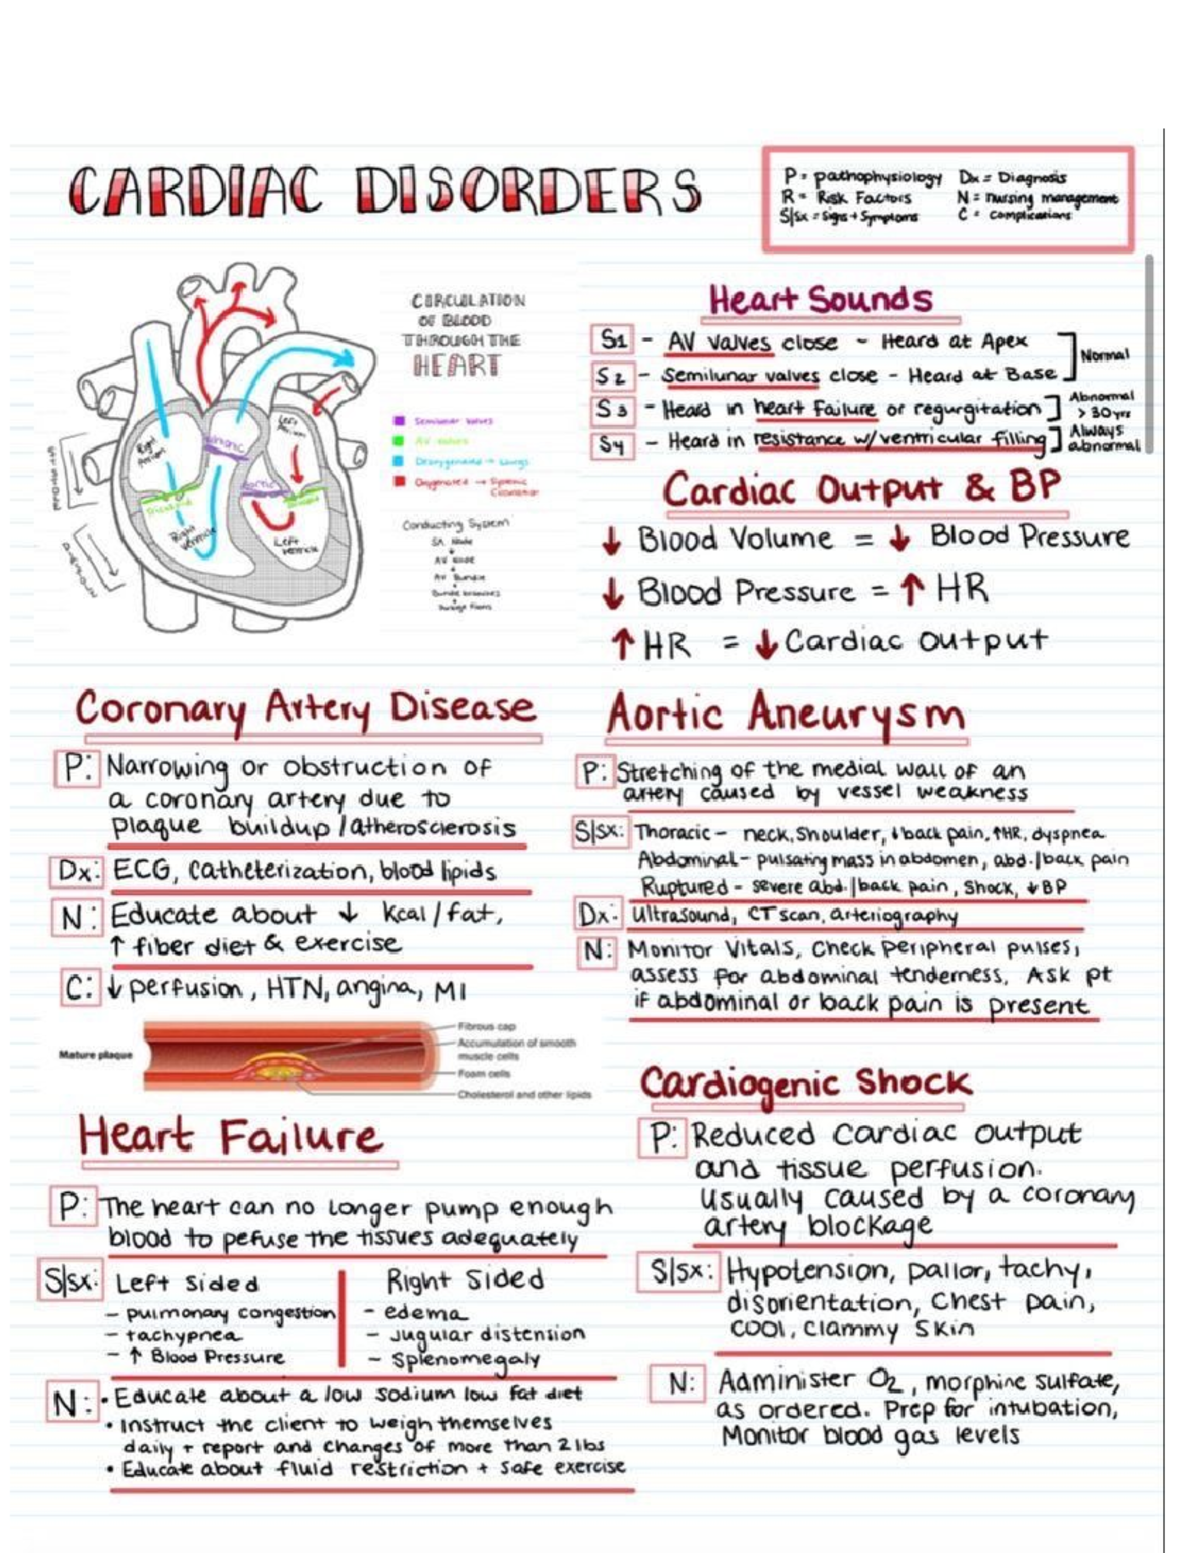 CARDIAC DISORDERS
P = pathophysiology Dx = Diagnosis
R = Risk Factors N = nursing management
S|sx = Signs + Symptoms C = complications
CIRCULATION
OF BLOOD
THROUGH THE
HEART
Semilunar valves
AV valves
Deoxygenated → Lungs
Oxygenated → Systemic
Circulation
Conducting System
SA Node
AV Node
AV Bundle
Bundle branches
Right Atrium
Left Atrium
Aortic
Tricuspid
Right Ventricle
Left Ventricle
Heart Sounds
S1 - AV valves close - Heard at Apex
S2 - Semilunar valves close - Heard at Base
Normal
S3 - Heard in heart failure or regurgitation
Abnormal
> 30 yrs
S4 - Heard in resistance w/ventricular filling
Always
abnormal
Cardiac Output & BP
↓ Blood Volume = ↓ Blood Pressure
↓ Blood Pressure = ↑ HR
↑ HR = ↓ Cardiac output
Coronary Artery Disease
P: Narrowing or obstruction of
a coronary artery due to
plaque buildup/atherosclerosis
Dx: ECG, Catheterization, blood lipids
N: Educate about ↓ kcal/fat,
↑ fiber diet & exercise
C: ↓ perfusion, HTN, angina, MI
Mature plaque
Fibrous cap
Accumulation of smooth
muscle cells
Foam cells
Cholesterol and other lipids
Aortic Aneurysm
P: Stretching of the medial wall of an
artery caused by vessel weakness
S|sx: Thoracic - neck, shoulder, ↓ back pain, ↑HR, dyspnea
Abdominal - pulsating mass in abdomen, abd.|back pain
Ruptured - severe abd.|back pain, shock, ↓ BP
Dx: Ultrasound, CT scan, arteriography
N: Monitor Vitals, Check Peripheral pulses,
assess for abdominal tenderness, Ask pt
if abdominal or back pain is present
Heart Failure
P: The heart can no longer pump enough
blood to pefuse the tissues adequately
S|sx: Left Sided
- pulmonary congestion
- tachypnea
- ↑ Blood Pressure
Right Sided
- edema
- Jugular distension
- Splenomegaly
N: • Educate about a low sodium low fat diet
• Instruct the client to weigh themselves
daily + report and changes of more than 2 lbs
• Educate about fluid restriction + safe exercise
Cardiogenic Shock
P: Reduced cardiac output
and tissue perfusion.
Usually caused by a coronary
artery blockage
S|sx: Hypotension, pallor, tachy,
disorientation, Chest pain,
cool, clammy skin
N: Administer O2, morphine sulfate,
as ordered. Prep for intubation,
Monitor blood gas levels